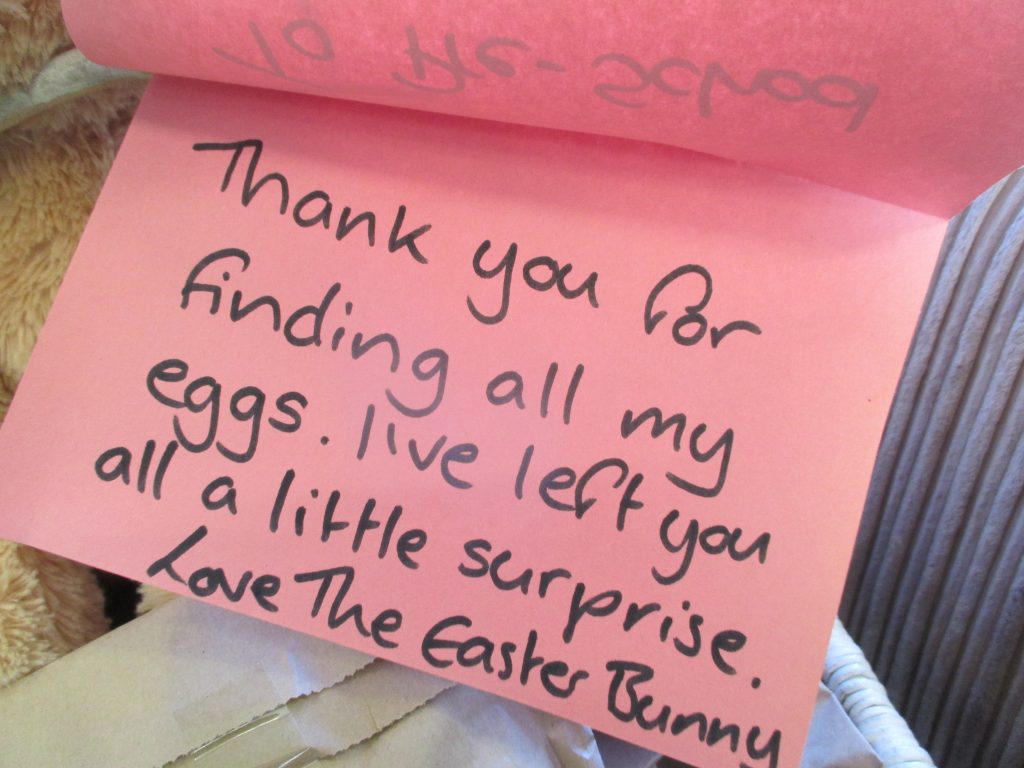 To Pre-School
Thank you for
finding all my
eggs. I've left you
all a little surprise.
Love The Easter Bunny